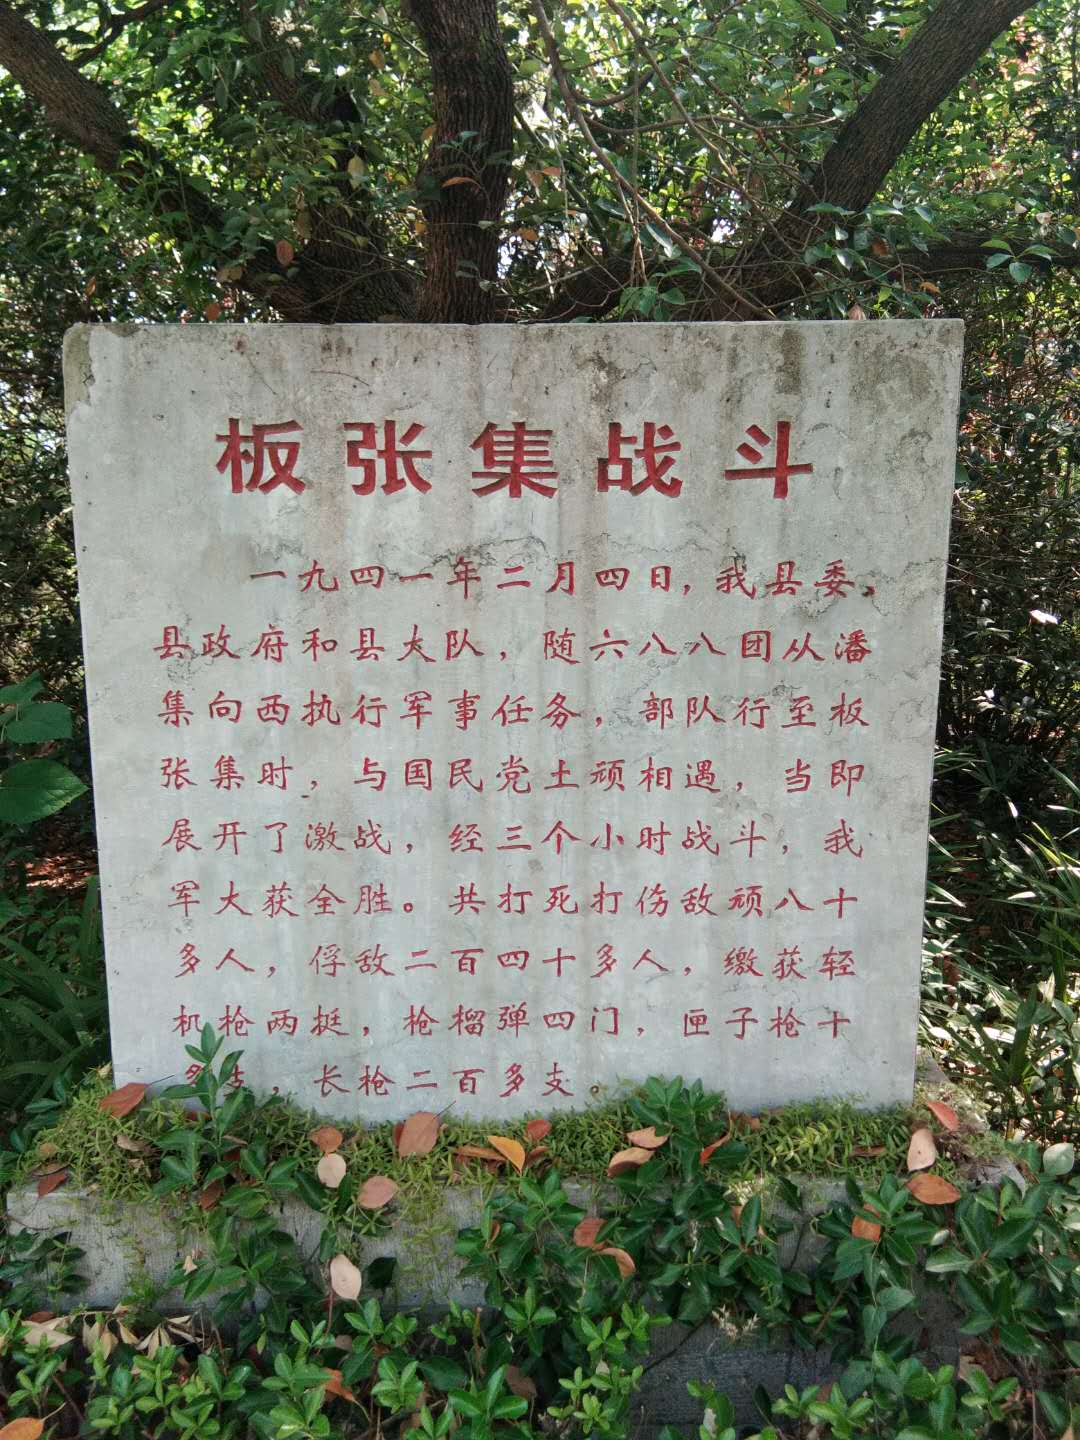 板张集战斗
一九四一年二月四日，我县委、
县政府和县大队，随六八八团从潘
集向西执行军事任务，部队行至板
张集时，与国民党土顽相遇，当即
展开了激战，经三个小时战斗，我
军大获全胜。共打死打伤敌顽八十
多人，俘敌二百四十多人，缴获轻
机枪两挺，枪榴弹四门，匣子枪十
多支，长枪二百多支。